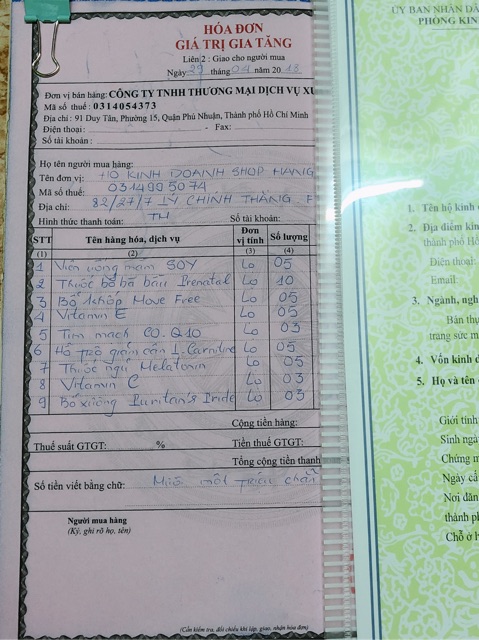 HÓA ĐƠN
GIÁ TRỊ GIA TĂNG
Liên 2 : Giao cho người mua
Ngày 29 tháng 04 năm 2018
Đơn vị bán hàng: CÔNG TY TNHH THƯƠNG MẠI DỊCH VỤ XU
Mã số thuế: 0314054373
Địa chỉ: 91 Duy Tân, Phường 15, Quận Phú Nhuận, Thành phố Hồ Chí Minh
Điện thoại: - Fax:
Số tài khoản:
Họ tên người mua hàng:
Tên đơn vị: HỘ KINH DOANH SHOP HÀNG
Mã số thuế: 0314995074
Địa chỉ: 82/27/7 LÝ CHÍNH THẮNG, P
Hình thức thanh toán: TM Số tài khoản:
STT Tên hàng hóa, dịch vụ Đơn vị tính Số lượng
(1) (2) (3) (4)
1 Viên uống mầm SOY Lọ 05
2 Thuốc bổ bà bầu Prenatal Lọ 10
3 Bổ khớp Move Free Lọ 05
4 Vitamin E Lọ 05
5 Tim mạch CO.Q10 Lọ 03
6 Hỗ trợ giảm cân L.Carnitine Lọ 05
7 Thuốc ngủ Melatonin Lọ 05
8 Vitamin C Lọ 03
9 Bổ xương Puritan's Pride Lọ 03
Cộng tiền hàng:
Thuế suất GTGT: % Tiền thuế GTGT:
Tổng cộng tiền thanh
Số tiền viết bằng chữ: Mười một triệu chẵn
Người mua hàng
(Ký, ghi rõ họ, tên)
(Cần kiểm tra, đối chiếu khi lập, giao, nhận hóa đơn)
ỦY BAN NHÂN DÂ
PHÒNG KIN
1. Tên hộ kinh d
2. Địa điểm kin
thành phố Hồ
Điện thoại:
Email:
3. Ngành, ngh
Bán thu
trang sức m
4. Vốn kinh d
5. Họ và tên
Giới tính
Sinh ngà
Chứng m
Ngày cấ
Nơi đăn
thành ph
Chỗ ở h